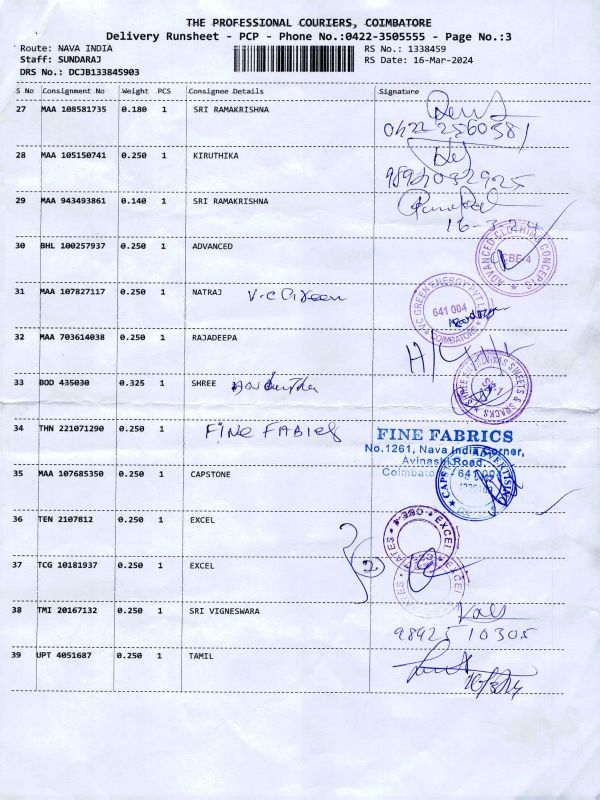 THE PROFESSIONAL COURIERS, COIMBATORE
Delivery Runsheet - PCP - Phone No.:0422-3505555 - Page No.:3
Route: NAVA INDIA RS No.: 1338459
Staff: SUNDARAJ RS Date: 16-Mar-2024
DRS No.: DCJB133845903
S No Consignment No Weight PCS Consignee Details Signature
27 MAA 108581735 0.180 1 SRI RAMAKRISHNA
0422 2560381
28 MAA 105150741 0.250 1 KIRUTHIKA
29 MAA 943493861 0.140 1 SRI RAMAKRISHNA
16-3-24
30 BHL 100257937 0.250 1 ADVANCED
ADVANCED CLOTHING CONCEPTS CBE-4
31 MAA 107827117 0.250 1 NATRAJ V.C Green
V.C GREEN ENERGY PVT LTD 641 004 COIMBATORE
32 MAA 703614038 0.250 1 RAJADEEPA
33 BOD 435030 0.325 1 SHREE
SWEETS & SNACKS
34 THN 221071290 0.250 1 FINE FABICS
FINE FABRICS
No.1261, Nava India Corner,
Avinashi Road,
Coimbatore - 641 004
35 MAA 107685350 0.250 1 CAPSTONE
36 TEN 2107812 0.250 1 EXCEL
EXCEL
37 TCG 10181937 0.250 1 EXCEL
2
EXCEL
38 TMI 20167132 0.250 1 SRI VIGNESWARA
98925 10305
39 UPT 4051687 0.250 1 TAMIL
16/3/24